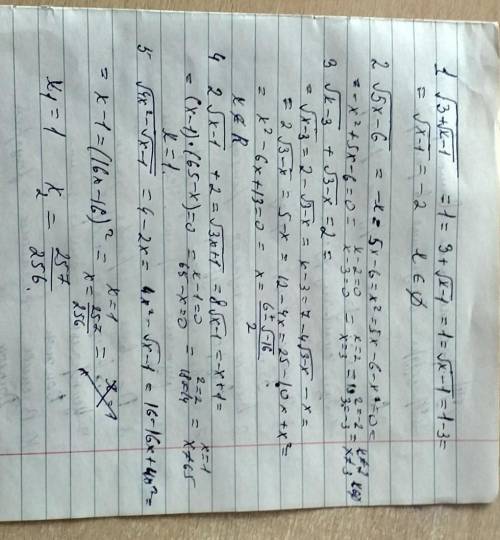 1 √3+√x-1 = 1 = 3+√x-1 = 1 = √x-1 = 1-3 =
= √x-1 = -2 x ∈ ∅
2 √5x-6 = -x = 5x-6 = x² = 5x-6-x² = 0 =
= -x²+5x-6=0 = x-2=0 x=2
x-3=0 x=3
3 √x-3 + √3-x = 2 =
= √x-3 = 2-√3-x = x-3 = 7-4√3-x - x =
= 2√3-x = 5-x = 12-4x = 25-10x+x² =
= x²-6x+13=0 = x = 6±√-16 / 2
x ∉ R
4 2√x-1 + 2 = √3x+1 = 8√x-1 = x+1 =
= (x-1)·(65-x)=0 = x-1=0 x=1
65-x=0 x≠65
x=1
5 √4x²-√x-1 = 4-2x = 4x²-√x-1 = 16-16x+4x² =
= x-1=(16x-16)² = x=1
x=257/256
x₁ = 1 x₂ = 257/256.